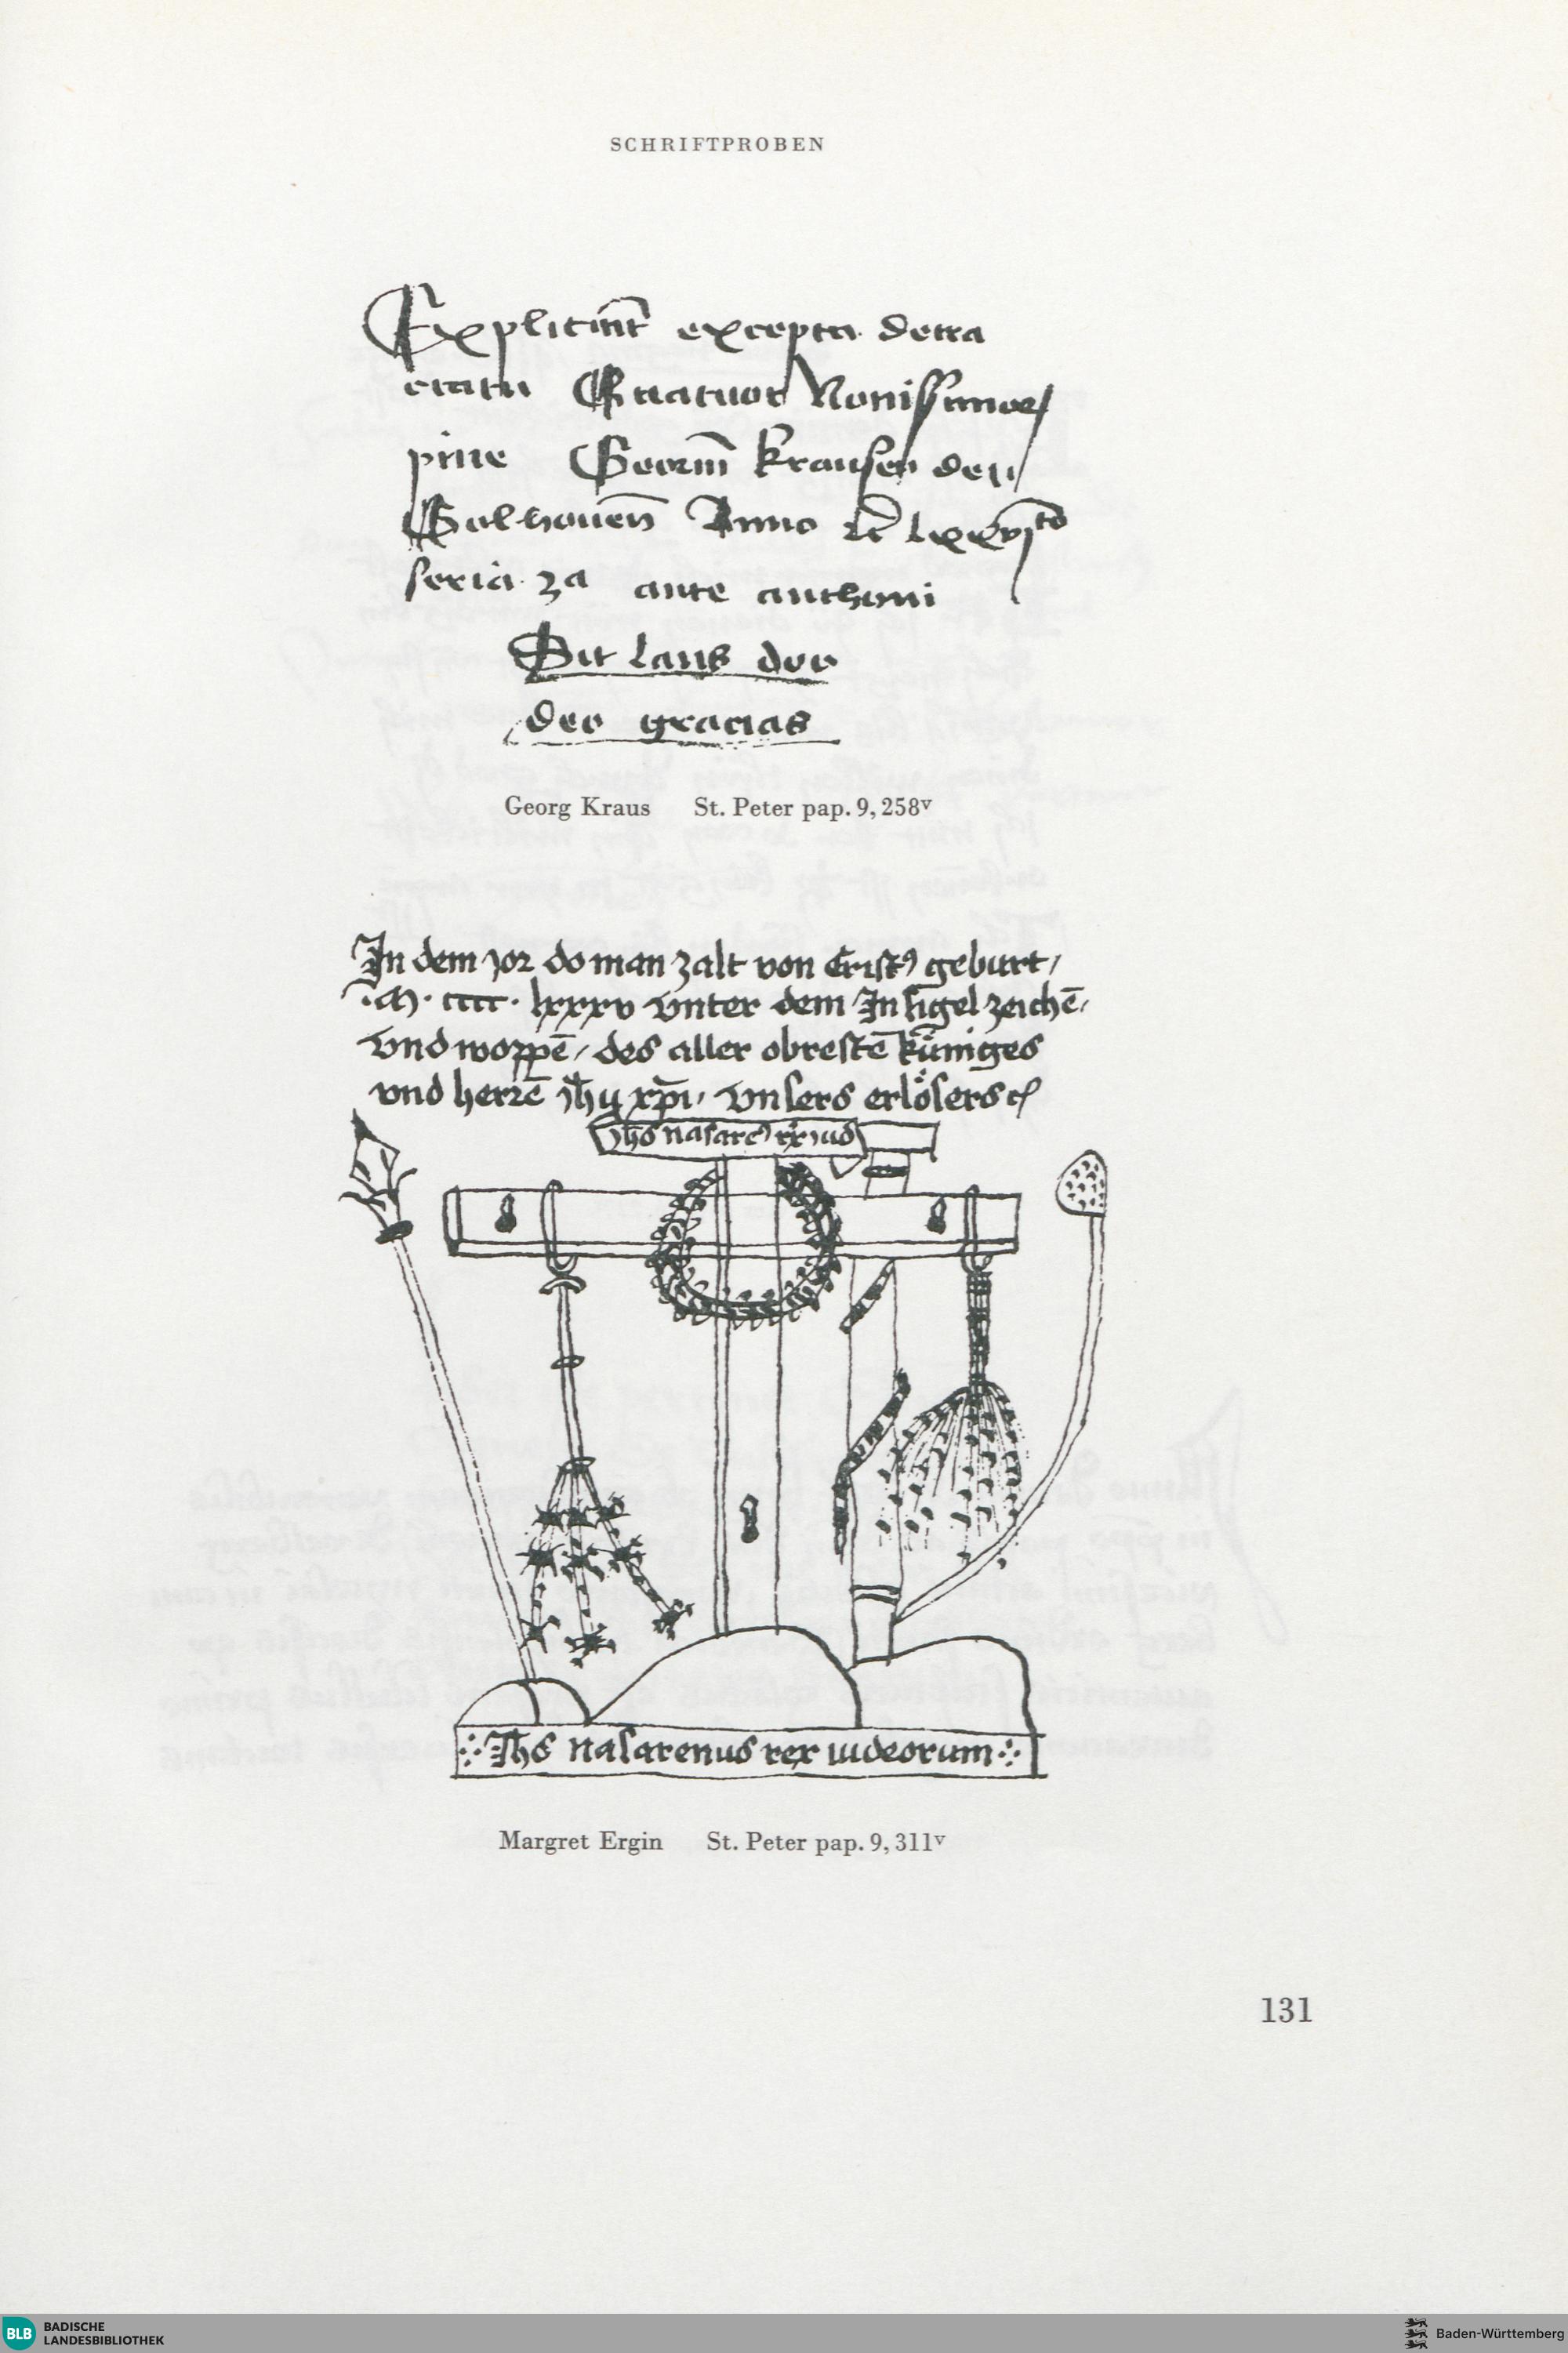 SCHRIFTPROBEN
Expliciūt excepta de tra
ctatu Quatuor Nouissimor
Georiū krausen
Anno lxxxvjto
feria 3a ante anthoni
Sit laus deo
deo gracias
Georg Kraus St. Peter pap. 9, 258v
In dem jor do man zalt von Cristꝰ geburt /
·M· cccc· lxxxv vnter dem Insigel zeichē /
vnd woppē / des aller obrestē küniges
vnd herrē jhū xp̄i / vnsers erlösers ꝛc
Jhs nasareꝰ rx jud
Jhs nasarenus rex iudeorum
Margret Ergin St. Peter pap. 9, 311v
131
BLB BADISCHE
LANDESBIBLIOTHEK
Baden-Württemberg